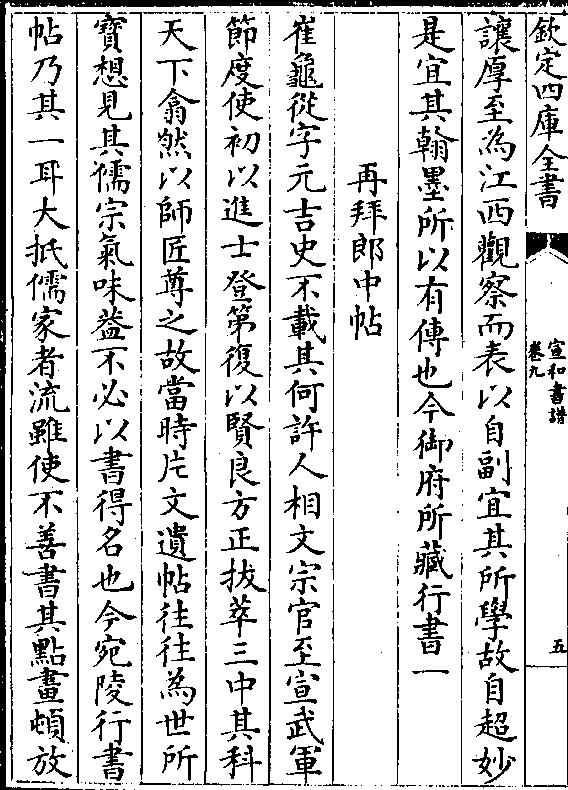 欽定四庫全書
宣和書譜
卷九
五
讓厚至為江西觀察而表以自副宜其所學故自超妙
是宜其翰墨所以有傳也今御府所藏行書一
再拜郎中帖
崔龜從字元吉史不載其何許人相文宗官至宣武軍
節度使初以進士登第復以賢良方正拔萃三中其科
天下翕然以師匠尊之故當時片文遺帖往往為世所
寶想見其儒宗氣味益不必以書得名也今宛陵行書
帖乃其一耳大抵儒家者流雖使不善書其點畫頓放